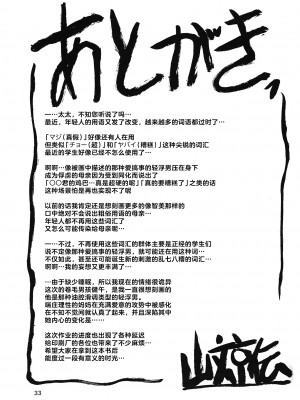 あとがき、
一…太太，不知您听说了吗…
最近，年轻人的用语又发了改变，越来越多的词语都过时了…
「マジ(真假)」好像还有人在用
但类似「チョー(超)」和「ヤバイ(糟糕)」这种尖锐的词汇
最近的学生好像已经不怎么使用了…
啊啊…像被画中描述的那种爱搞事的轻浮男压在身下
成为俘虏的母亲因为受到同化而说出了
「〇〇君的鸡巴…真是超硬的呢」「真的要糟了」之类的话
这种场景怕是再也实现不了呢
以前的话我肯定还是想刻画更多的像智美那样的
口中绝对不会说出粗俗用语的母亲…
年轻人都不再用这些词汇了
又怎么可能传染给母亲呢…
一…不过，不再使用这些词汇的群体主要是正经的学生们
说不定像那种爱搞事的轻浮男，就可能还在用这种词…
不仅如此，甚至还可能诞生新的刺激的乱七八糟的词汇…
啊啊…我的妄想又更丰满了…
一由于缺少睡眠，所以我现在的情绪很诡异
这次的卷毛男孩健午，是我一直很想刻画的
他是那种油腔滑调类型的轻浮男，
端庄理性的妈妈在充满爱意的攻势中被感化
在不知不觉间就认真了起来，并且深陷其中
她内心的变化是……
这次作业的进度也出现了各种延迟
给印刷厂的各位也带来了不少麻烦…
希望大家在拿到这本书后
能度过一段有意义的时光…
33